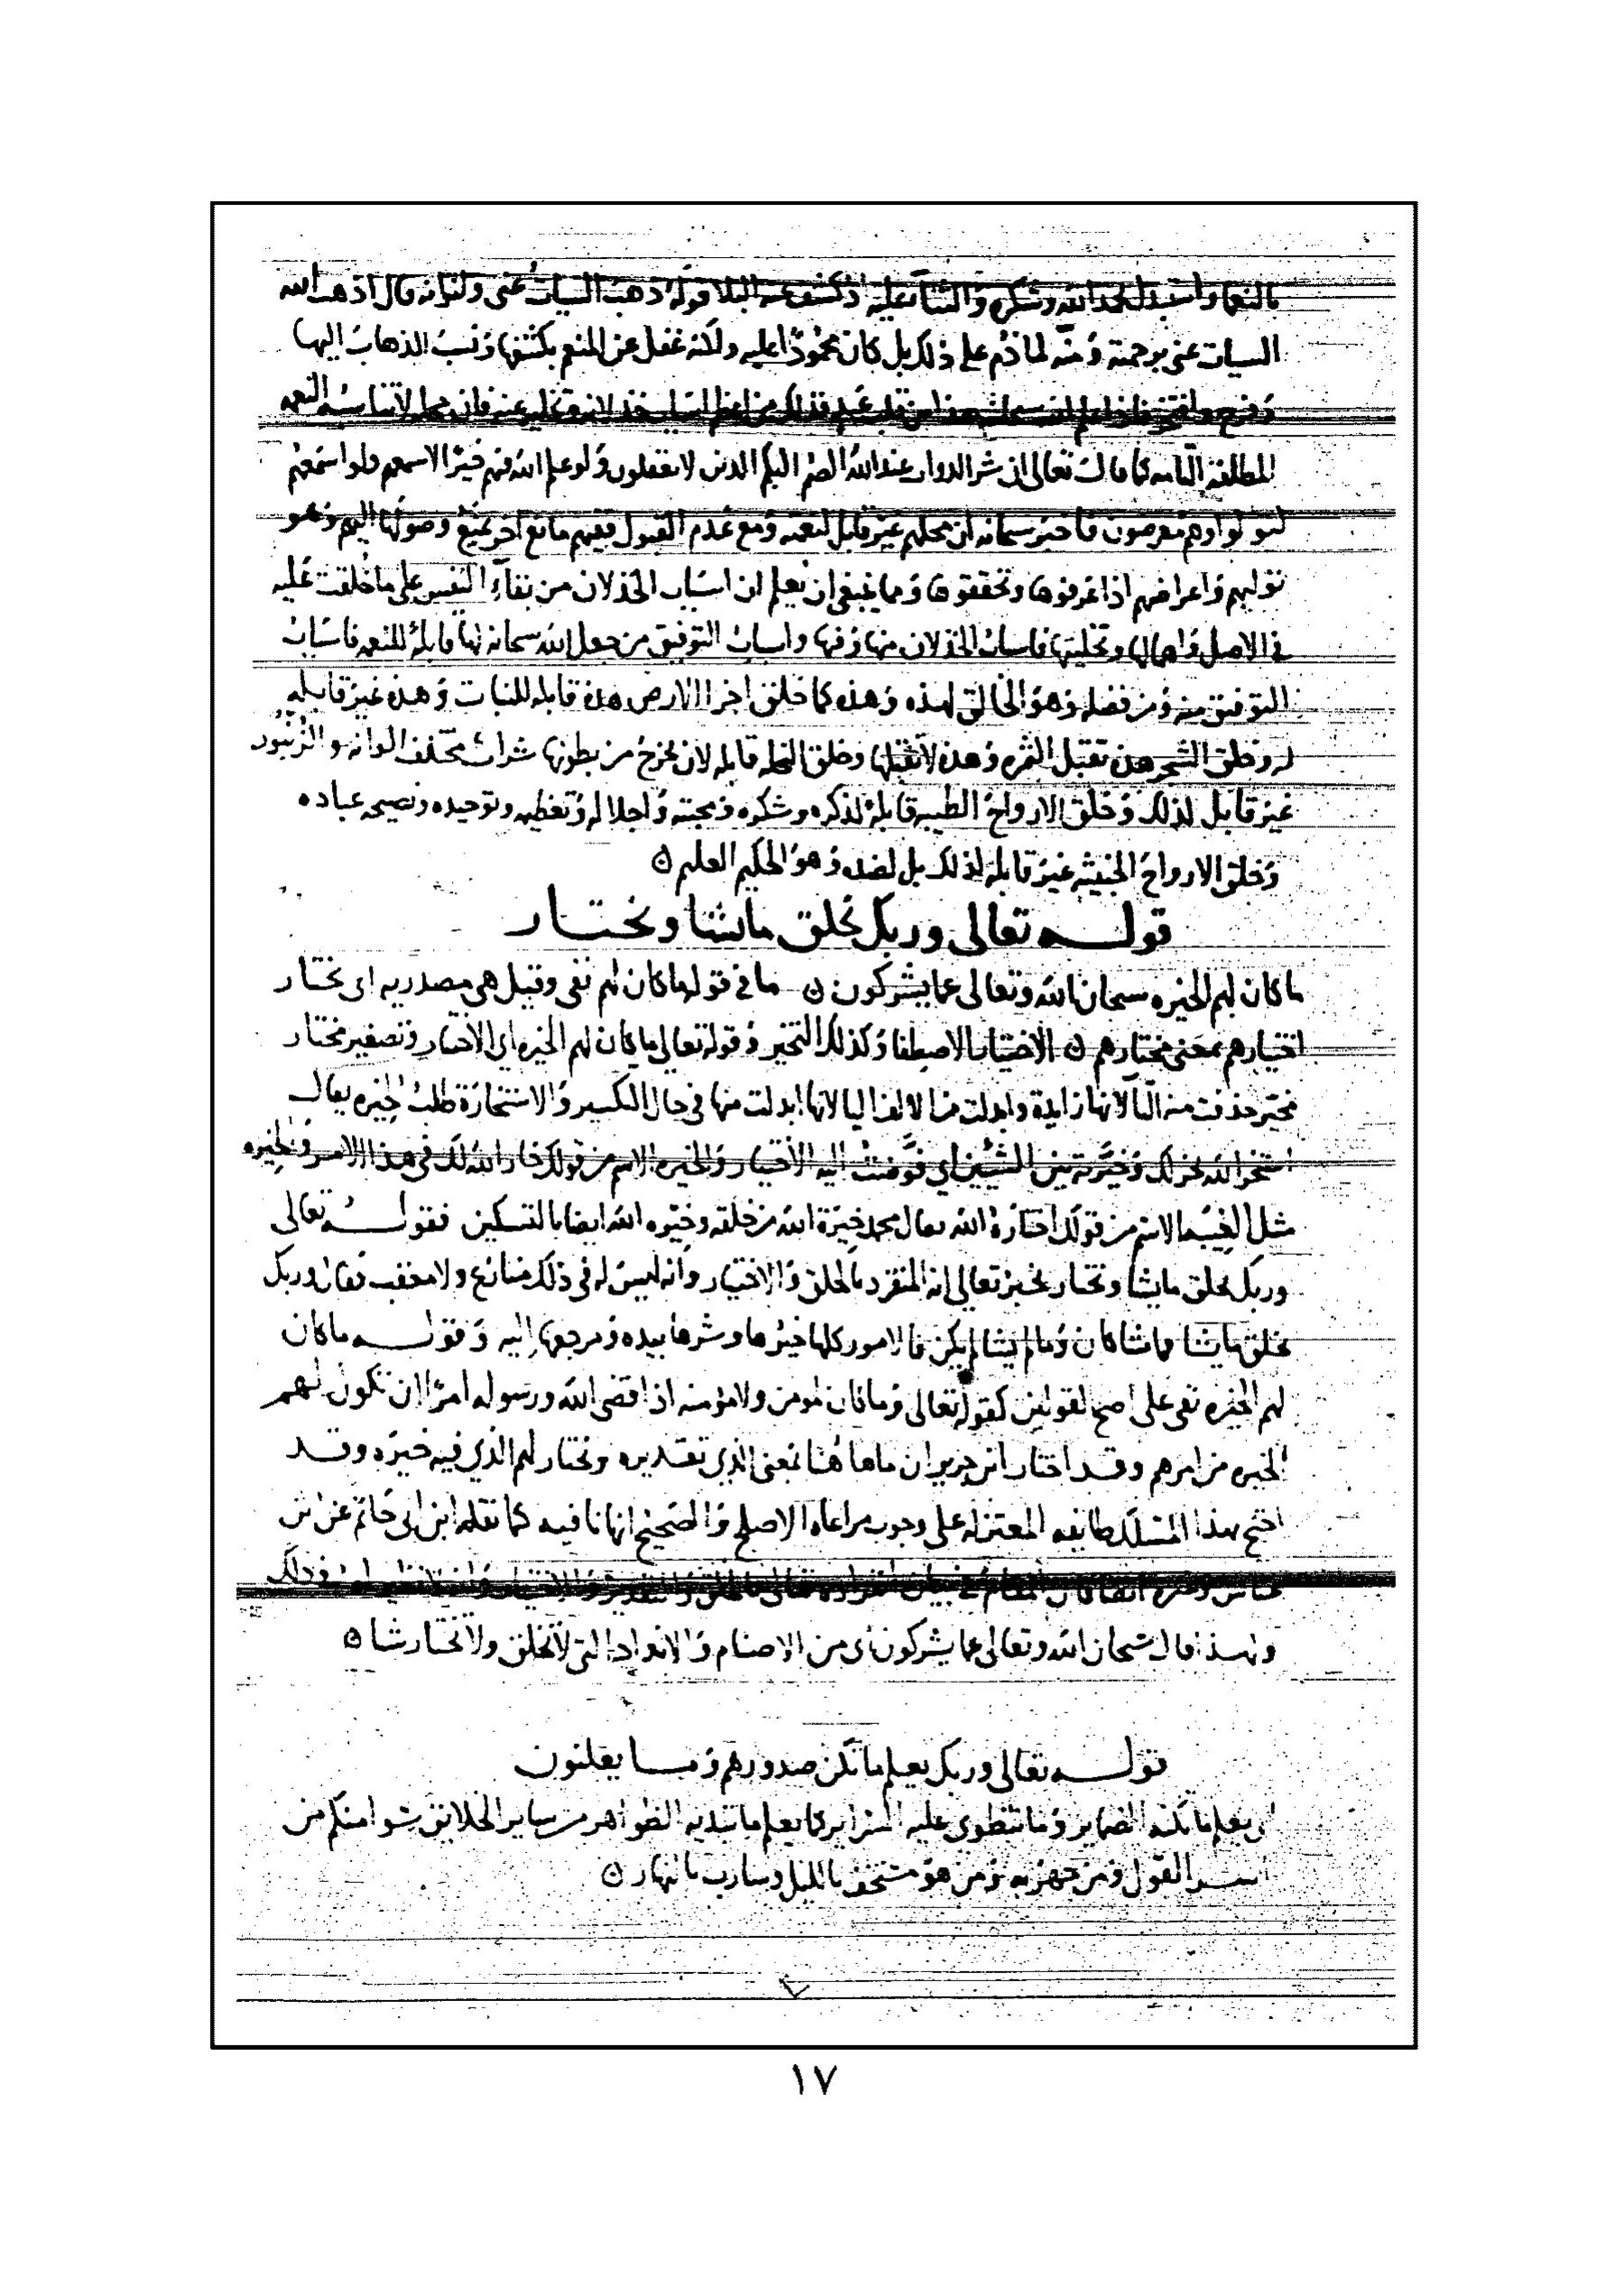 بالنعما واستبدل بحمد الله وشكره والثنا عليه اذ كشف عنه البلا قوله ذهب السيات عني ولو انه قال اذهب الله
السيات عني برحمته ومنه لما ذم على ذلك بل كان محمودا عليه ولكنه غفل عن المنعم بكشفها ونسب الذهاب اليها
وفرح وافتخر فاذا علم الله سبحانه هذا من قلب عبد فذلك من اعظم اسباب خذلانه وتخليه عنه فان محله لا تناسبه النعمه
المطلقة التامه كما قال تعالى ان شر الدواب عند الله الصم البكم الذين لا يعقلون ولو علم الله فيهم خيرا لاسمعهم ولو اسمعهم
لتولوا وهم معرضون فاخبر سبحانه ان محلهم غير قابل لنعمته ومع عدم القبول ففيهم مانع اخر يمنع وصولها اليهم وهو
توليهم واعراضهم اذا عرفوها وتحققوها ومما ينبغي ان يعلم ان اسباب الخذلان من بقاء النفس على ما خلقت عليه
في الاصل واهمالها وتخليتها فاسباب الخذلان منها وفيها واسباب التوفيق من جعل الله سبحانه لها قابلة للنعمه فاسباب
التوفيق منه ومن فضله وهو الخالق لهذه وهذه كما خلق اجزا الارض هذه قابله للنبات وهذه غير قابله
له وخلق الشجر هذه تقبل الثمره وهذه لا تقبلها وخلق النحله قابله لان يخرج من بطونها شراب مختلف الوانه والزنبور
غير قابل لذلك وخلق الارواح الطيبه قابلة لذكره وشكره ومحبته واجلاله وتعظيمه وتوحيده ونصيحه عباده
وخلق الارواح الخبيثه غير قابله لذلك بل لضده وهو الحكيم العليم
قوله تعالى وربك يخلق ما يشا ويختار
ما كان لهم الخيره سبحان الله وتعالى عما يشركون ما في قوله ما كان لهم نفي وقيل هي مصدريه اي يختار
اختيارهم بمعنى مختارهم الاختيار الاصطفا وكذلك التخير وقوله تعالى ما كان لهم الخيره اي الاختيار وتصغير مختار
مخير حذفت منه التا لانها زايدة وابدلت من الالف اليا لانها ابدلت منها في حال التكسير والاستخارة طلب الخيره يقال
استخر الله يخر لك وخيرته بين الشيئين اي فوضت اليه الاختيار والخيره الاسم من قولك خار الله لك في هذا الامر والخيره
مثل العنبه الاسم من قولك اختاره الله يقال محمد خيرة الله من خلقه وخيره الله ايضا بالتسكين فقوله تعالى
وربك يخلق ما يشا ويختار يخبر تعالى انه المنفرد بالخلق والاختيار وانه ليس له في ذلك منازع ولا معقب فقال وربك
يخلق ما يشا فما شا كان وما لم يشا لم يكن فالامور كلها خيرها وشرها بيده ومرجعها اليه وقوله ما كان
لهم الخيره نفي على اصح القولين كقوله تعالى وما كان لمومن ولا مؤمنه اذا قضى الله ورسوله امرا ان تكون لهم
الخيره من امرهم وقد اختار ابن جرير ان ما هاهنا بمعنى الذي تقديره ويختار لهم الذي فيه خيره وقد
احتج بهذا المسلك طايفه المعتزله على وجوب مراعاه الاصلح والصحيح انها نافيه كما نقله ابن ابي حاتم عن ابن
عباس وغيره ايضا فان المقام في بيان انفراده تعالى بالخلق والتقدير والاختيار وانه لا نظير له في ذلك
ولهذا قال سبحان الله وتعالى عما يشركون اي من الاصنام والانداد التي لا تخلق ولا تختار شيا
قوله تعالى وربك يعلم ما تكن صدورهم وما يعلنون
اي يعلم ما تكنه الضماير وما تنطوي عليه السراير كما يعلم ما تبديه الظواهر من ساير الخلايق سوا منكم من
اسر القول ومن جهر به ومن هو مستخف بالليل وسارب بالنهار
١٧